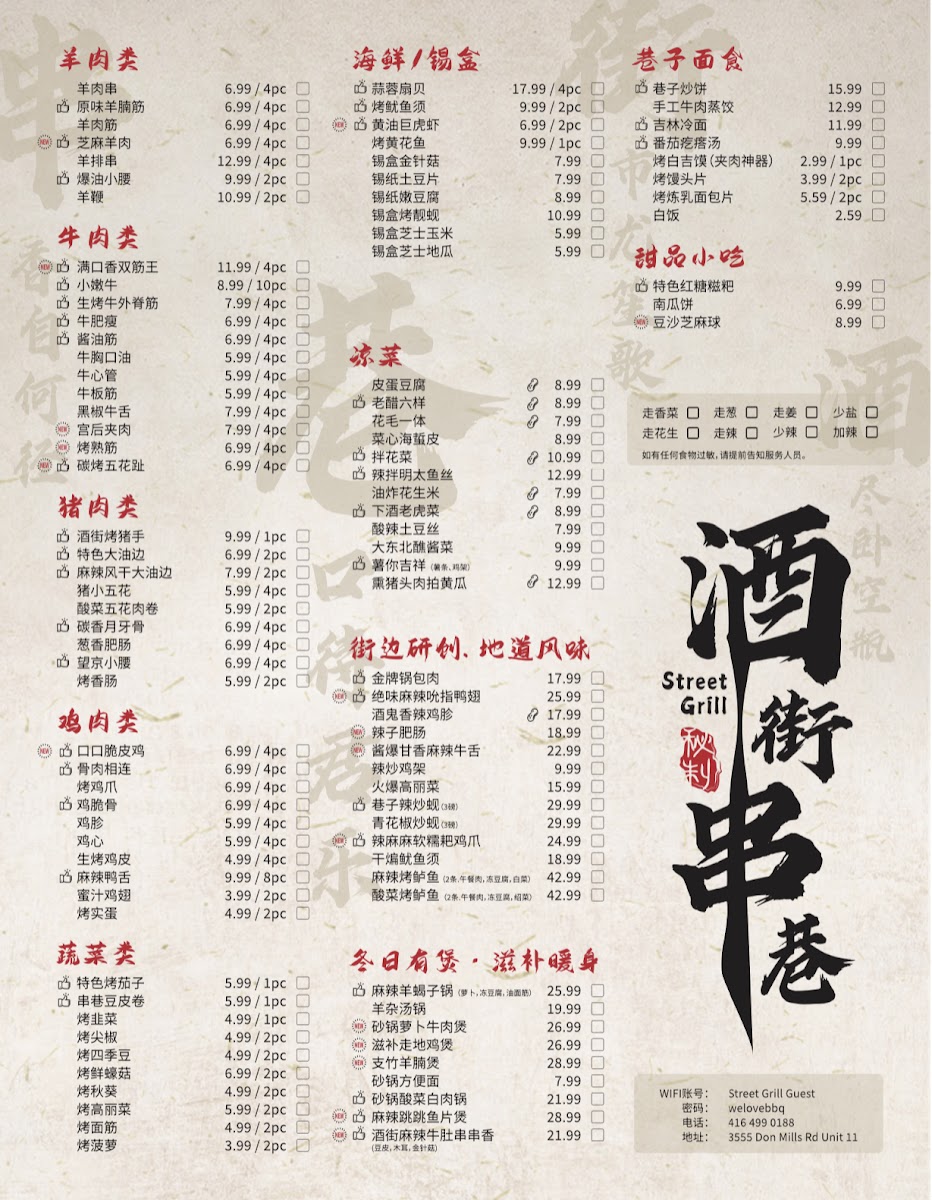 羊肉类
羊肉串 6.99 / 4pc
原味羊腩筋 6.99 / 4pc
羊肉筋 6.99 / 4pc
NEW 芝麻羊肉 6.99 / 4pc
羊排串 12.99 / 4pc
爆油小腰 9.99 / 2pc
羊鞭 10.99 / 2pc
牛肉类
NEW 满口香双筋王 11.99 / 4pc
小嫩牛 8.99 / 10pc
生烤牛外脊筋 7.99 / 4pc
牛肥瘦 6.99 / 4pc
酱油筋 6.99 / 4pc
牛胸口油 5.99 / 4pc
牛心管 5.99 / 4pc
牛板筋 5.99 / 4pc
黑椒牛舌 7.99 / 4pc
NEW 宫后夹肉 7.99 / 4pc
NEW 烤熟筋 6.99 / 4pc
NEW 碳烤五花趾 6.99 / 4pc
猪肉类
酒街烤猪手 9.99 / 1pc
特色大油边 6.99 / 2pc
麻辣风干大油边 7.99 / 2pc
猪小五花 5.99 / 4pc
酸菜五花肉卷 5.99 / 2pc
碳香月牙骨 6.99 / 4pc
葱香肥肠 6.99 / 4pc
望京小腰 6.99 / 4pc
烤香肠 5.99 / 2pc
鸡肉类
NEW 口口脆皮鸡 6.99 / 4pc
骨肉相连 6.99 / 4pc
烤鸡爪 6.99 / 4pc
鸡脆骨 6.99 / 4pc
鸡胗 5.99 / 4pc
鸡心 5.99 / 4pc
生烤鸡皮 4.99 / 4pc
麻辣鸭舌 9.99 / 8pc
蜜汁鸡翅 3.99 / 2pc
烤实蛋 4.99 / 2pc
蔬菜类
特色烤茄子 5.99 / 1pc
串巷豆皮卷 5.99 / 1pc
烤韭菜 4.99 / 1pc
烤尖椒 4.99 / 2pc
烤四季豆 4.99 / 2pc
烤鲜蠔菇 6.99 / 2pc
烤秋葵 4.99 / 2pc
烤高丽菜 5.99 / 2pc
烤面筋 4.99 / 2pc
烤菠萝 3.99 / 2pc
海鲜/锡盒
蒜蓉扇贝 17.99 / 4pc
烤鱿鱼须 9.99 / 2pc
NEW 黄油巨虎虾 6.99 / 2pc
烤黄花鱼 9.99 / 1pc
锡盒金针菇 7.99
锡纸土豆片 7.99
锡纸嫩豆腐 8.99
锡盒烤靓蚬 10.99
锡盒芝士玉米 5.99
锡盒芝士地瓜 5.99
凉菜
皮蛋豆腐 8.99
老醋六样 8.99
花毛一体 7.99
菜心海蜇皮 8.99
拌花菜 10.99
辣拌明太鱼丝 12.99
油炸花生米 7.99
下酒老虎菜 8.99
酸辣土豆丝 7.99
大东北蘸酱菜 9.99
薯你吉祥 (薯条、鸡架) 9.99
熏猪头肉拍黄瓜 12.99
街边研创、地道风味
金牌锅包肉 17.99
NEW 绝味麻辣吮指鸭翅 25.99
酒鬼香辣鸡胗 17.99
NEW 辣子肥肠 18.99
NEW 酱爆甘香麻辣牛舌 22.99
辣炒鸡架 9.99
火爆高丽菜 15.99
巷子辣炒蚬(3磅) 29.99
青花椒炒蚬(3磅) 29.99
NEW 辣麻麻软糯耙鸡爪 24.99
干煸鱿鱼须 18.99
麻辣烤鲈鱼 (2条.午餐肉,冻豆腐,白菜) 42.99
酸菜烤鲈鱼 (2条.午餐肉,冻豆腐,绍菜) 42.99
冬日有煲·滋补暖身
麻辣羊蝎子锅 (萝卜,冻豆腐,油面筋) 25.99
羊杂汤锅 19.99
NEW 砂锅萝卜牛肉煲 26.99
NEW 滋补走地鸡煲 26.99
NEW 支竹羊腩煲 28.99
砂锅方便面 7.99
砂锅酸菜白肉锅 21.99
NEW 麻辣跳跳鱼片煲 28.99
NEW 酒街麻辣牛肚串串香 21.99
(豆皮,木耳,金针菇)
巷子面食
巷子炒饼 15.99
手工牛肉蒸饺 12.99
吉林冷面 11.99
番茄疙瘩汤 9.99
烤白吉馍(夹肉神器) 2.99 / 1pc
烤馒头片 3.99 / 2pc
烤炼乳面包片 5.59 / 2pc
白饭 2.59
甜品小吃
特色红糖糍粑 9.99
南瓜饼 6.99
NEW 豆沙芝麻球 8.99
走香菜 走葱 走姜 少盐
走花生 走辣 少辣 加辣
如有任何食物过敏,请提前告知服务人员。
酒街串巷
Street
Grill
秘制
WIFI账号: Street Grill Guest
密码: welovebbq
电话: 416 499 0188
地址: 3555 Don Mills Rd Unit 11